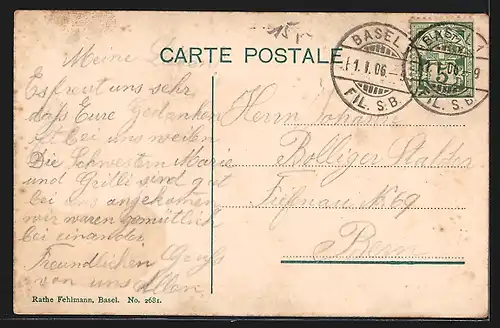 15,-
CARTE POSTALE
BASEL 1
-1.I.06.-9
FIL. S.B.
BASEL 1
-1.I.06.-9
FIL. S.B.
5
Meine
Es freut uns sehr
daß Eure Gedanken
oft bei uns weilen
Die Schwestern Marie
und Grilli sind gut
bei uns angekommen
wir waren gemütlich
bei einander
Freundlichen Gruß
von uns Allen
Herrn Johann
Bolliger Stalder
No 69
Bern
Rathe Fehlmann, Basel. No. 2681.